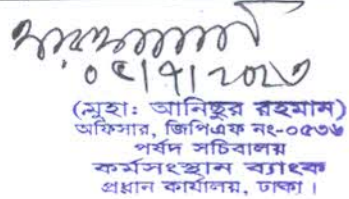 ০৫/৭/২০২৩
(মুহা: আনিছুর রহমান)
অফিসার, জিপিএফ নং-০৫৩৬
পর্ষদ সচিবালয়
কর্মসংস্থান ব্যাংক
প্রধান কার্যালয়, ঢাকা।